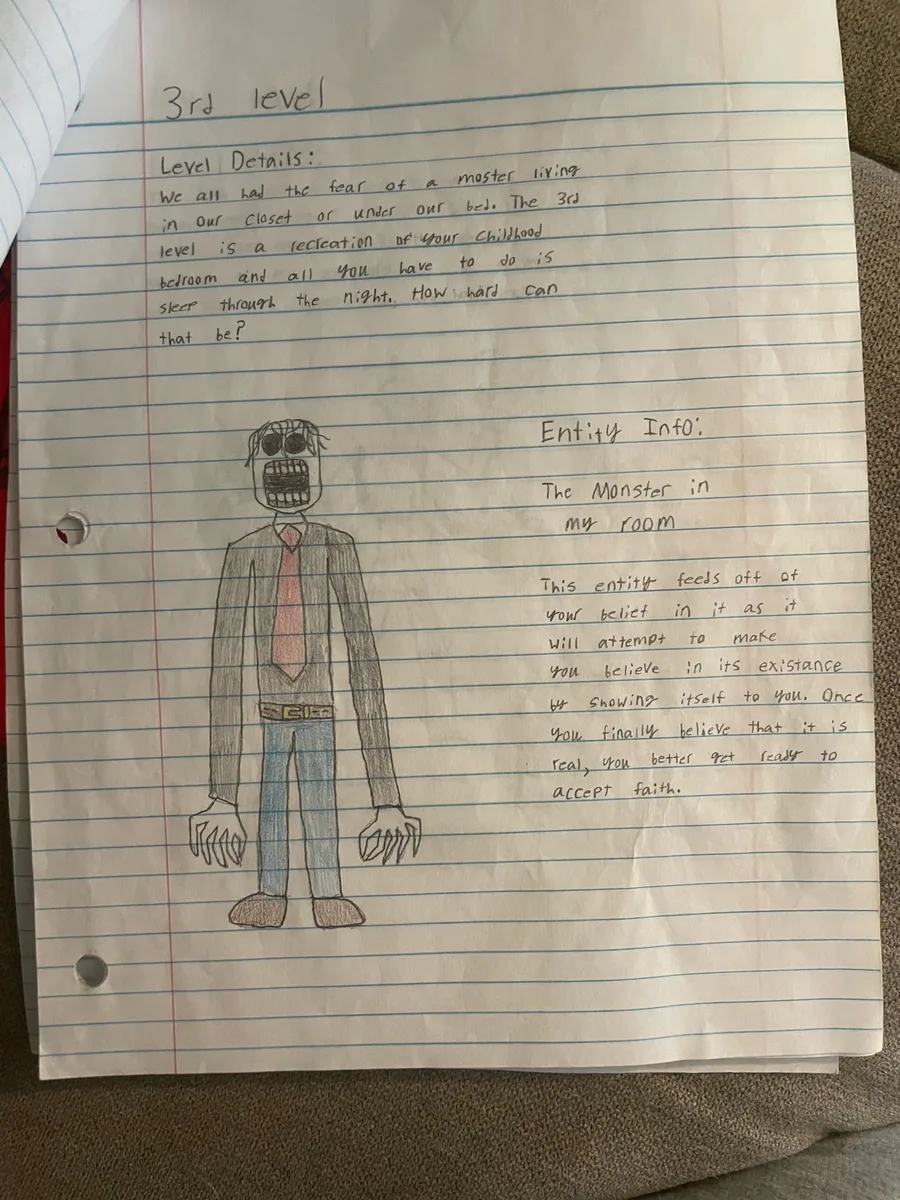 3rd level
Level Details:
We all had the fear of a moster living
in our closet or under our bed. The 3rd
level is a recreation of your childhood
bedroom and all you have to do is
sleep through the night. How hard can
that be?
Entity Info:
The Monster in
my room
This entity feeds off of
your belief in it as it
will attempt to make
you believe in its existance
by showing itself to you. Once
you finally believe that it is
real, you better get ready to
accept faith.